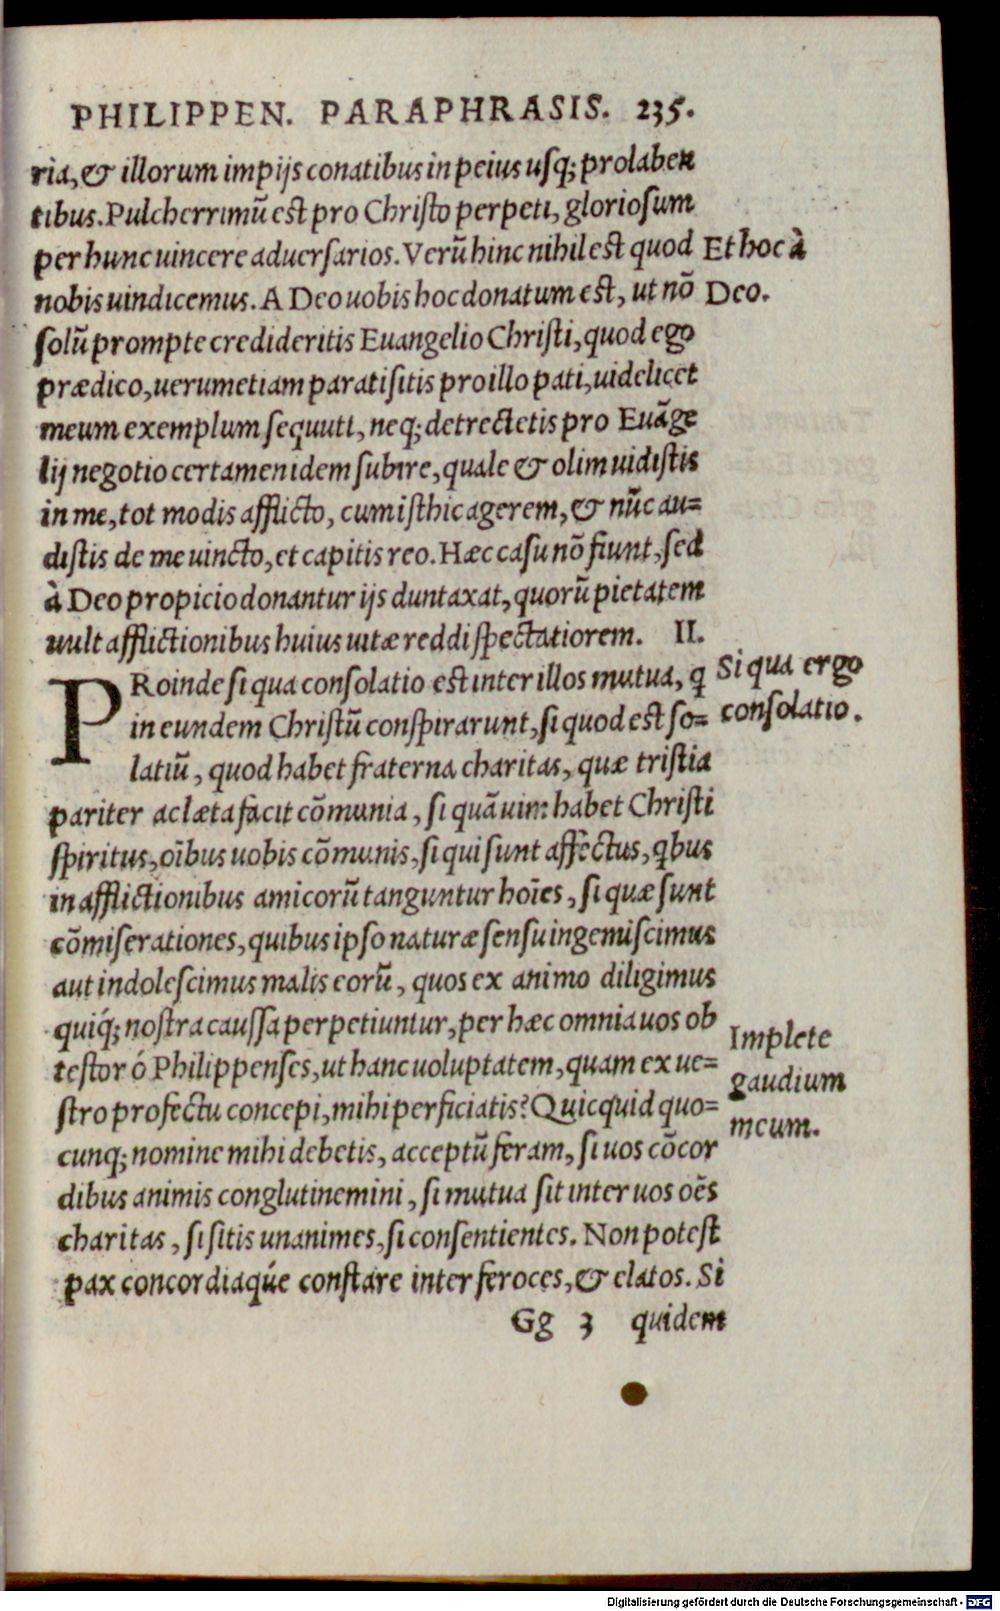 PHILIPPEN. PARAPHRASIS. 235.
ria, & illorum impijs conatibus in peius usq; prolaben
tibus. Pulcherrimũ est pro Christo perpeti, gloriosum
per hunc uincere aduersarios. Verũ hinc nihil est quod
Et hoc à
nobis uindicemus. A Deo uobis hoc donatum est, ut nõ
Deo.
solũ prompte credideritis Euangelio Christi, quod ego
prædico, uerumetiam parati sitis pro illo pati, uidelicet
meum exemplum sequuti, neq; detrectetis pro Euãge
lij negotio certamen idem subire, quale & olim uidistis
in me, tot modis afflicto, cum isthic agerem, & nũc au=
distis de me uincto, et capitis reo. Hæc casu nõ fiunt, sed
à Deo propicio donantur ijs duntaxat, quorũ pietatem
uult afflictionibus huius uitæ reddi spectatiorem. II.
PRoinde si qua consolatio est inter illos mutua, q̃
Si qua ergo
in eundem Christũ conspirarunt, si quod est so=
consolatio.
latiũ, quod habet fraterna charitas, quæ tristia
pariter ac læta facit cõmunia, si quã uim habet Christi
spiritus, oĩbus uobis cõmunis, si qui sunt affectus, qbus
in afflictionibus amicorũ tanguntur hoĩes, si quæ sunt
cõmiserationes, quibus ipso naturæ sensu ingemiscimus
aut indolescimus malis eorũ, quos ex animo diligimus
quiq́; nostra caussa perpetiuntur, per hæc omnia uos ob
testor ó Philippenses, ut hanc uoluptatem, quam ex ue=
stro profectu concepi, mihi perficiatis? Quicquid quo=
Implete
gaudium
meum.
cunq; nomine mihi debetis, acceptũ feram, si uos cõcor
dibus animis conglutinemini, si mutua sit inter uos oẽs
charitas, si sitis unanimes, si consentientes. Non potest
pax concordiaq́ue constare inter feroces, & elatos. Si
Gg 3 quidem
Digitalisierung gefördert durch die Deutsche Forschungsgemeinschaft - DFG